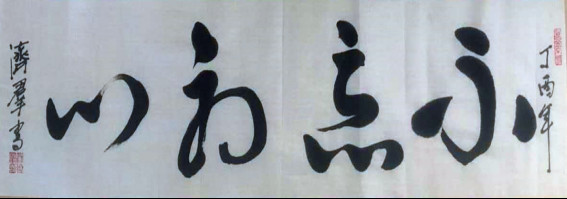 丁酉年
不忘初心
濟羣書